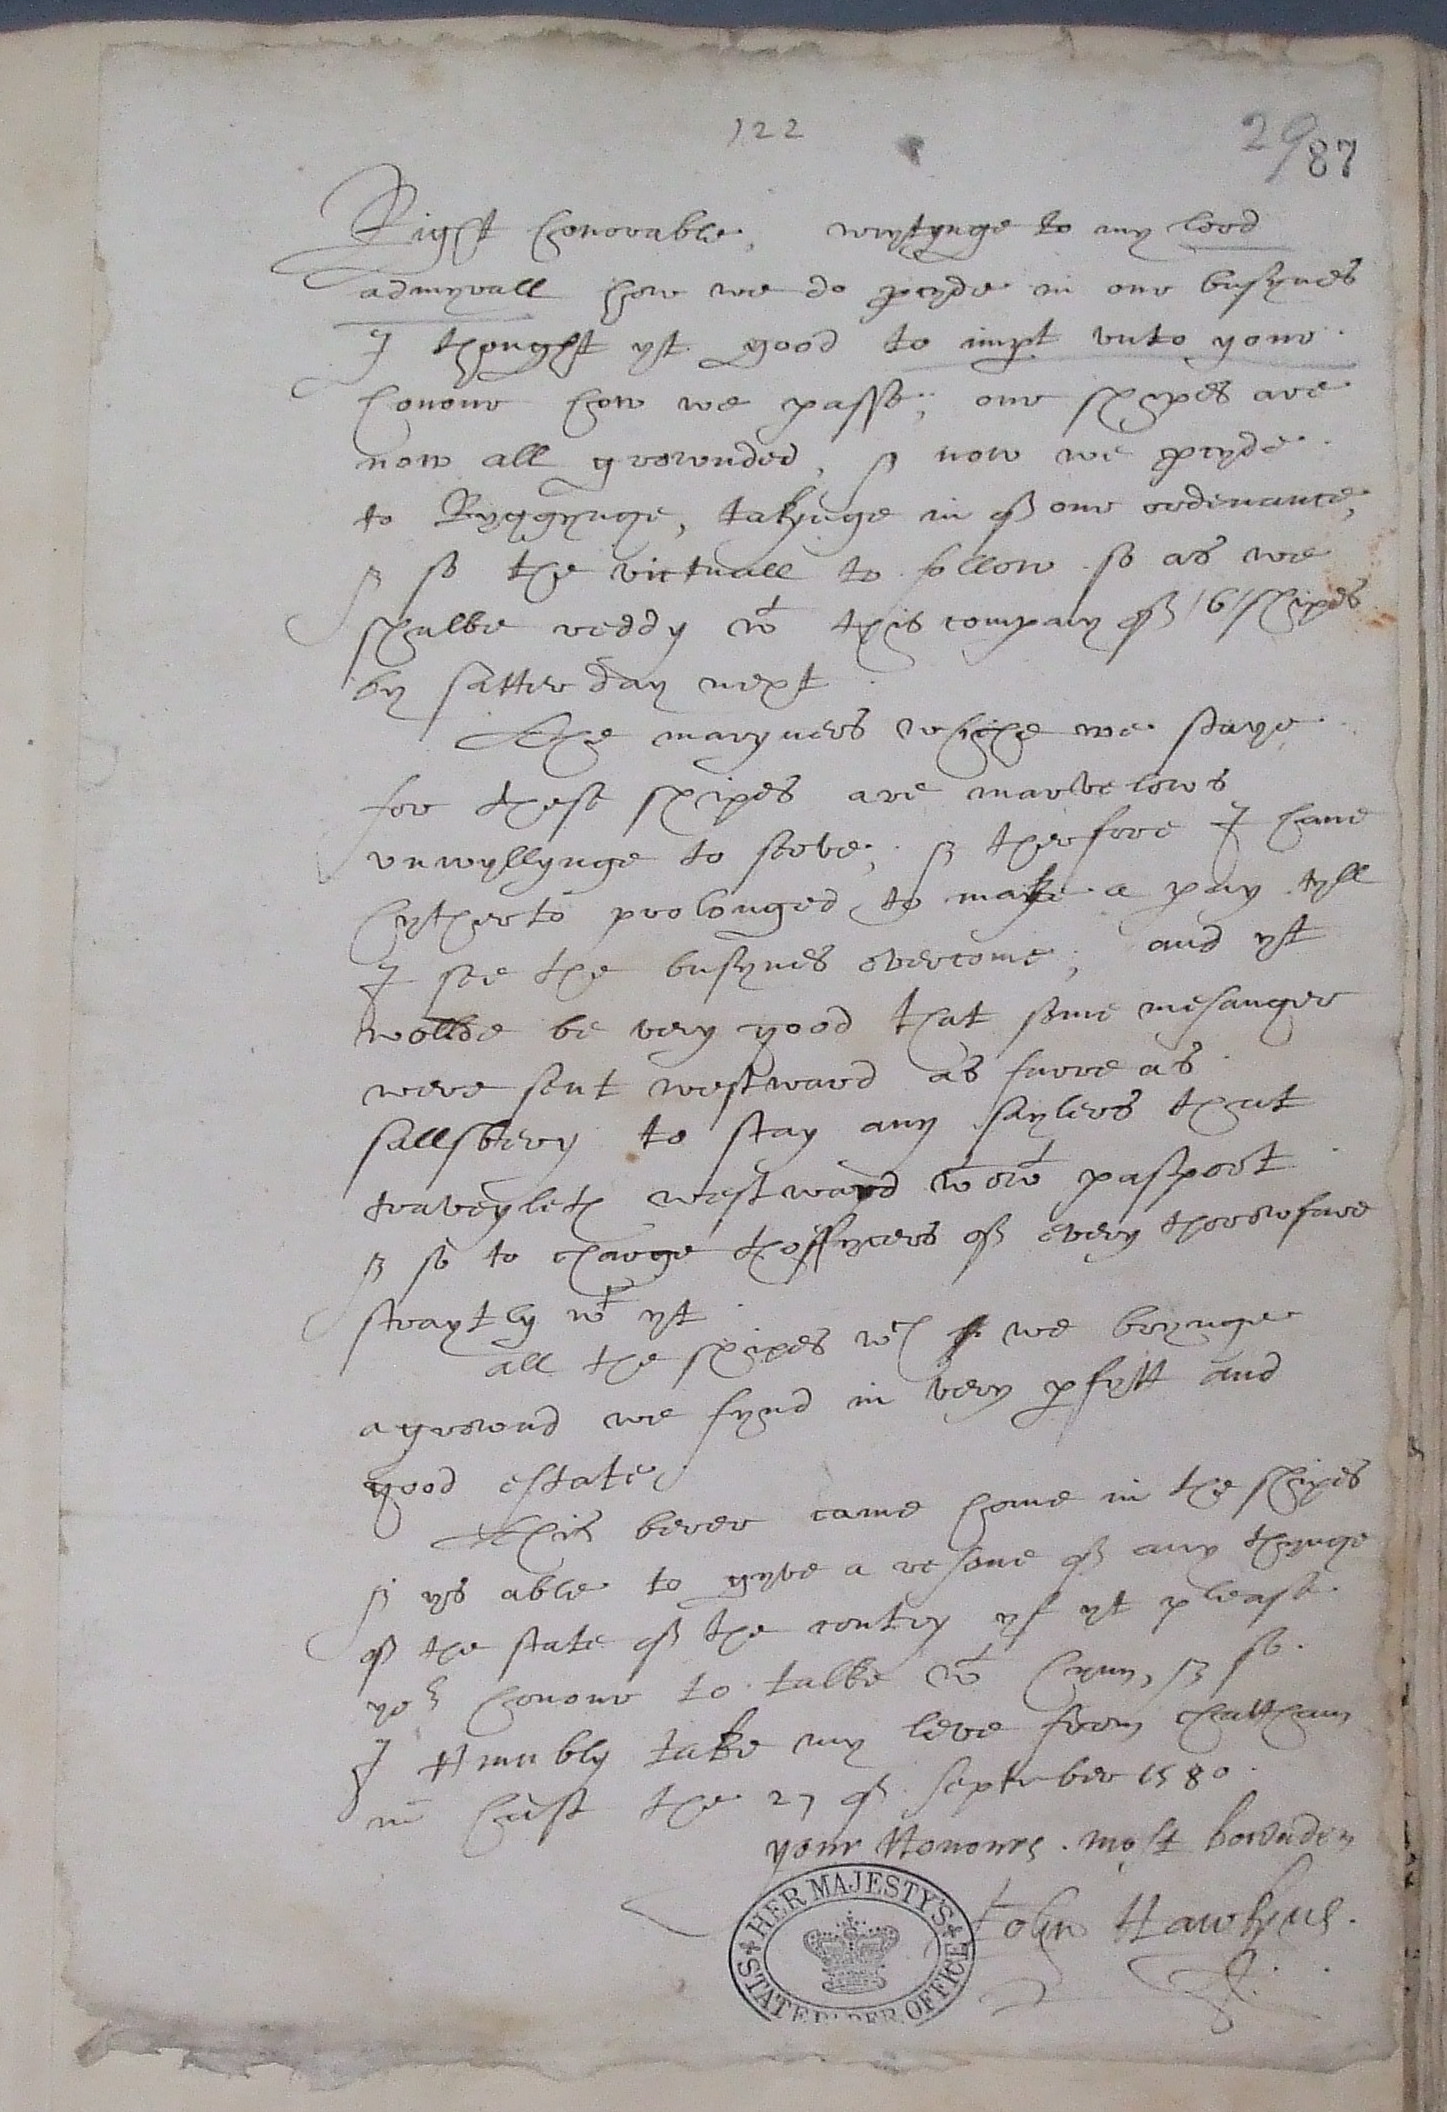 122
29
87
Right honorable, wrytynge to my lord
admyrall how we do procyde in our busynes
I thought yt good to impt unto your
honour how we passe; our shypes are
now all grownded, & now we procyde
to Ryggynge, takynge in of our ordenance,
& so the victuall to follow so as we
shalbe reddy wt this company of 16 shipes
by satterday next
The maryners whiche we staye
for these shipes are marvelows
unwyllynge to serve; & therfore I have
hytherto prolonged to make a pay tyll
I see the busynes overcome; and yt
wollde be very good that some mesanger
were sent westward as farre as
sallsbery to stay any saylers that
traveyleth westward wtowt pasport
& so to charge thoffycers of every thorowfare
straytly wt yt
all the shipes wch we brynge
agrownd we fynd in very perfytt and
good estate
This berer came home in the shipes
& ys able to gyve a resone of any thynge
of the state of the contry yf yt please
yor honour to talke wt hym, & so
I Humbly take my leve from chattham
in hast the 27 of september 1580
your Honours most bownden
John Hawkyns
HER MAJESTY'S
STATE PAPER OFFICE